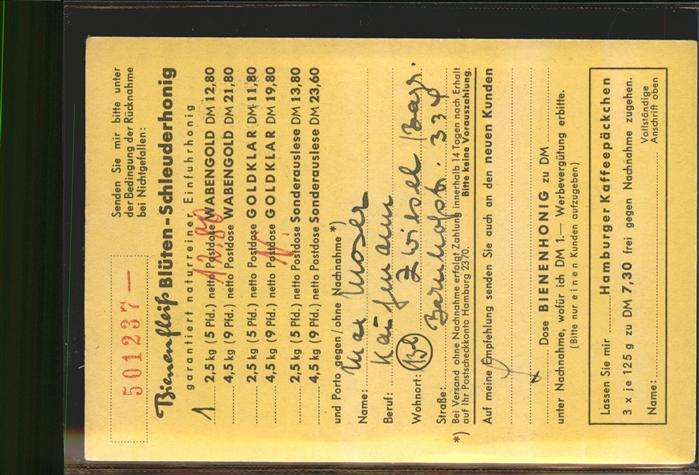 501237 —
Senden Sie mir bitte unter
der Bedingung der Rücknahme
bei Nichtgefallen:
Bienenfleiß Blüten-Schleuderhonig
garantiert naturreiner Einfuhrhonig
1 2,5 kg (5 Pfd.) netto Postdose WABENGOLD DM 12,80
4,5 kg (9 Pfd.) netto Postdose WABENGOLD DM 21,80
2,5 kg (5 Pfd.) netto Postdose GOLDKLAR DM 11,80
4,5 kg (9 Pfd.) netto Postdose GOLDKLAR DM 19,80
2,5 kg (5 Pfd.) netto Postdose Sonderauslese DM 13,80
4,5 kg (9 Pfd.) netto Postdose Sonderauslese DM 23,60
und Porto gegen/ohne Nachnahme *)
Name: Max Moser
Beruf: Kaufmann
Wohnort: Zwiesel (Bayr.
Straße: Bahnhofstr. 334
*) Bei Versand ohne Nachnahme erfolgt Zahlung innerhalb 14 Tagen nach Erhalt
auf Ihr Postscheckkonto Hamburg 2370. Bitte keine Vorauszahlung.
Auf meine Empfehlung senden Sie auch an den neuen Kunden
Dose BIENENHONIG zu DM
unter Nachnahme, wofür ich DM 1.— Werbevergütung erbitte.
(Bitte nur einen Kunden aufzugeben)
Lassen Sie mir Hamburger Kaffeepäckchen
3 x je 125 g zu DM 7,30 frei gegen Nachnahme zugehen.
Name: Vollständige
Anschrift oben